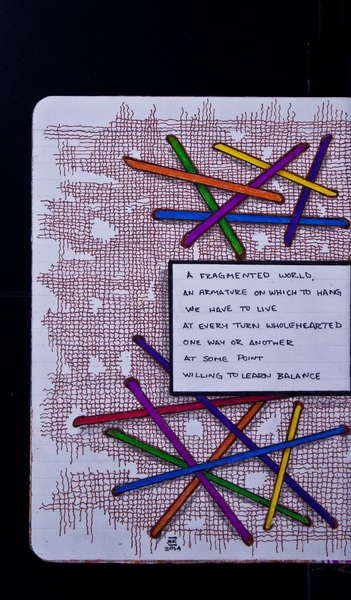 A FRAGMENTED WORLD,
AN ARMATURE ON WHICH TO HANG
WE HAVE TO LIVE
AT EVERY TURN WHOLEHEARTED
ONE WAY OR ANOTHER
AT SOME POINT
WILLING TO LEARN BALANCE
2014